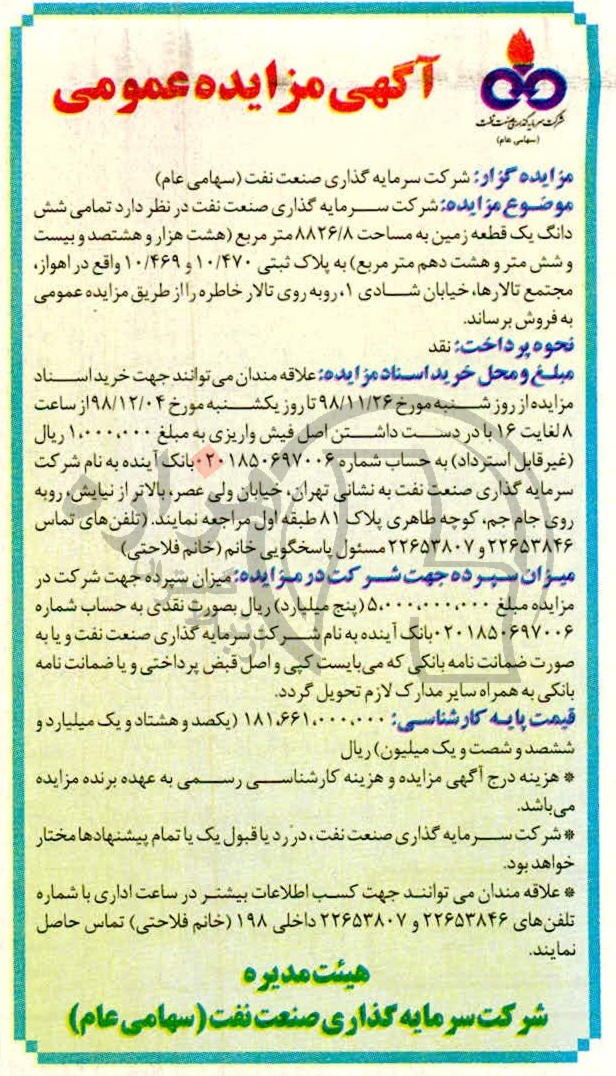 آگهی مزایده عمومی
شرکت سرمایه گذاری صنعت نفت
(سهامی عام)
مزایده گزار: شرکت سرمایه گذاری صنعت نفت (سهامی عام)
موضوع مزایده: شرکت سرمایه گذاری صنعت نفت در نظر دارد تمامی شش
دانگ یک قطعه زمین به مساحت ۸۸۲۶/۸ متر مربع (هشت هزار و هشتصد و بیست
و شش متر و هشت دهم متر مربع) به پلاک ثبتی ۱۰/۴۷۰ و ۱۰/۴۶۹ واقع در اهواز،
مجتمع تالارها، خیابان شادی ۱، روبه روی تالار خاطره را از طریق مزایده عمومی
به فروش برساند.
نحوه پرداخت: نقد
مبلغ و محل خرید اسناد مزایده: علاقه مندان می توانند جهت خرید اسناد
مزایده از روز شنبه مورخ ۹۸/۱۱/۲۶ تا روز یکشنبه مورخ ۹۸/۱۲/۰۴ از ساعت
۸ لغایت ۱۶ با در دست داشتن اصل فیش واریزی به مبلغ ۱,۰۰۰,۰۰۰ ریال
(غیر قابل استرداد) به حساب شماره ۰۲۰۱۸۵۰۶۹۷۰۰۶ بانک آینده به نام شرکت
سرمایه گذاری صنعت نفت به نشانی تهران، خیابان ولی عصر، بالاتر از نیایش، روبه
روی جام جم، کوچه طاهری پلاک ۸۱ طبقه اول مراجعه نمایند. (تلفن های تماس
۲۲۶۵۳۸۴۶ و ۲۲۶۵۳۸۰۷ مسئول پاسخگویی خانم (خانم فلاحتی)
میزان سپرده جهت شرکت در مزایده: میزان سپرده جهت شرکت در
مزایده مبلغ ۵,۰۰۰,۰۰۰,۰۰۰ (پنج میلیارد) ریال بصورت نقدی به حساب شماره
۰۲۰۱۸۵۰۶۹۷۰۰۶ بانک آینده به نام شرکت سرمایه گذاری صنعت نفت و یا به
صورت ضمانت نامه بانکی که می بایست کپی و اصل قبض پرداختی و یا ضمانت نامه
بانکی به همراه سایر مدارک لازم تحویل گردد.
قیمت پایه کارشناسی: ۱۸۱,۶۶۱,۰۰۰,۰۰۰ (یکصد و هشتاد و یک میلیارد و
ششصد و شصت و یک میلیون) ریال
* هزینه درج آگهی مزایده و هزینه کارشناسی رسمی به عهده برنده مزایده
می باشد.
* شرکت سرمایه گذاری صنعت نفت، در رد یا قبول یک یا تمام پیشنهادها مختار
خواهد بود.
* علاقه مندان می توانند جهت کسب اطلاعات بیشتر در ساعت اداری با شماره
تلفن های ۲۲۶۵۳۸۴۶ و ۲۲۶۵۳۸۰۷ داخلی ۱۹۸ (خانم فلاحتی) تماس حاصل
نمایند.
هیئت مدیره
شرکت سرمایه گذاری صنعت نفت (سهامی عام)